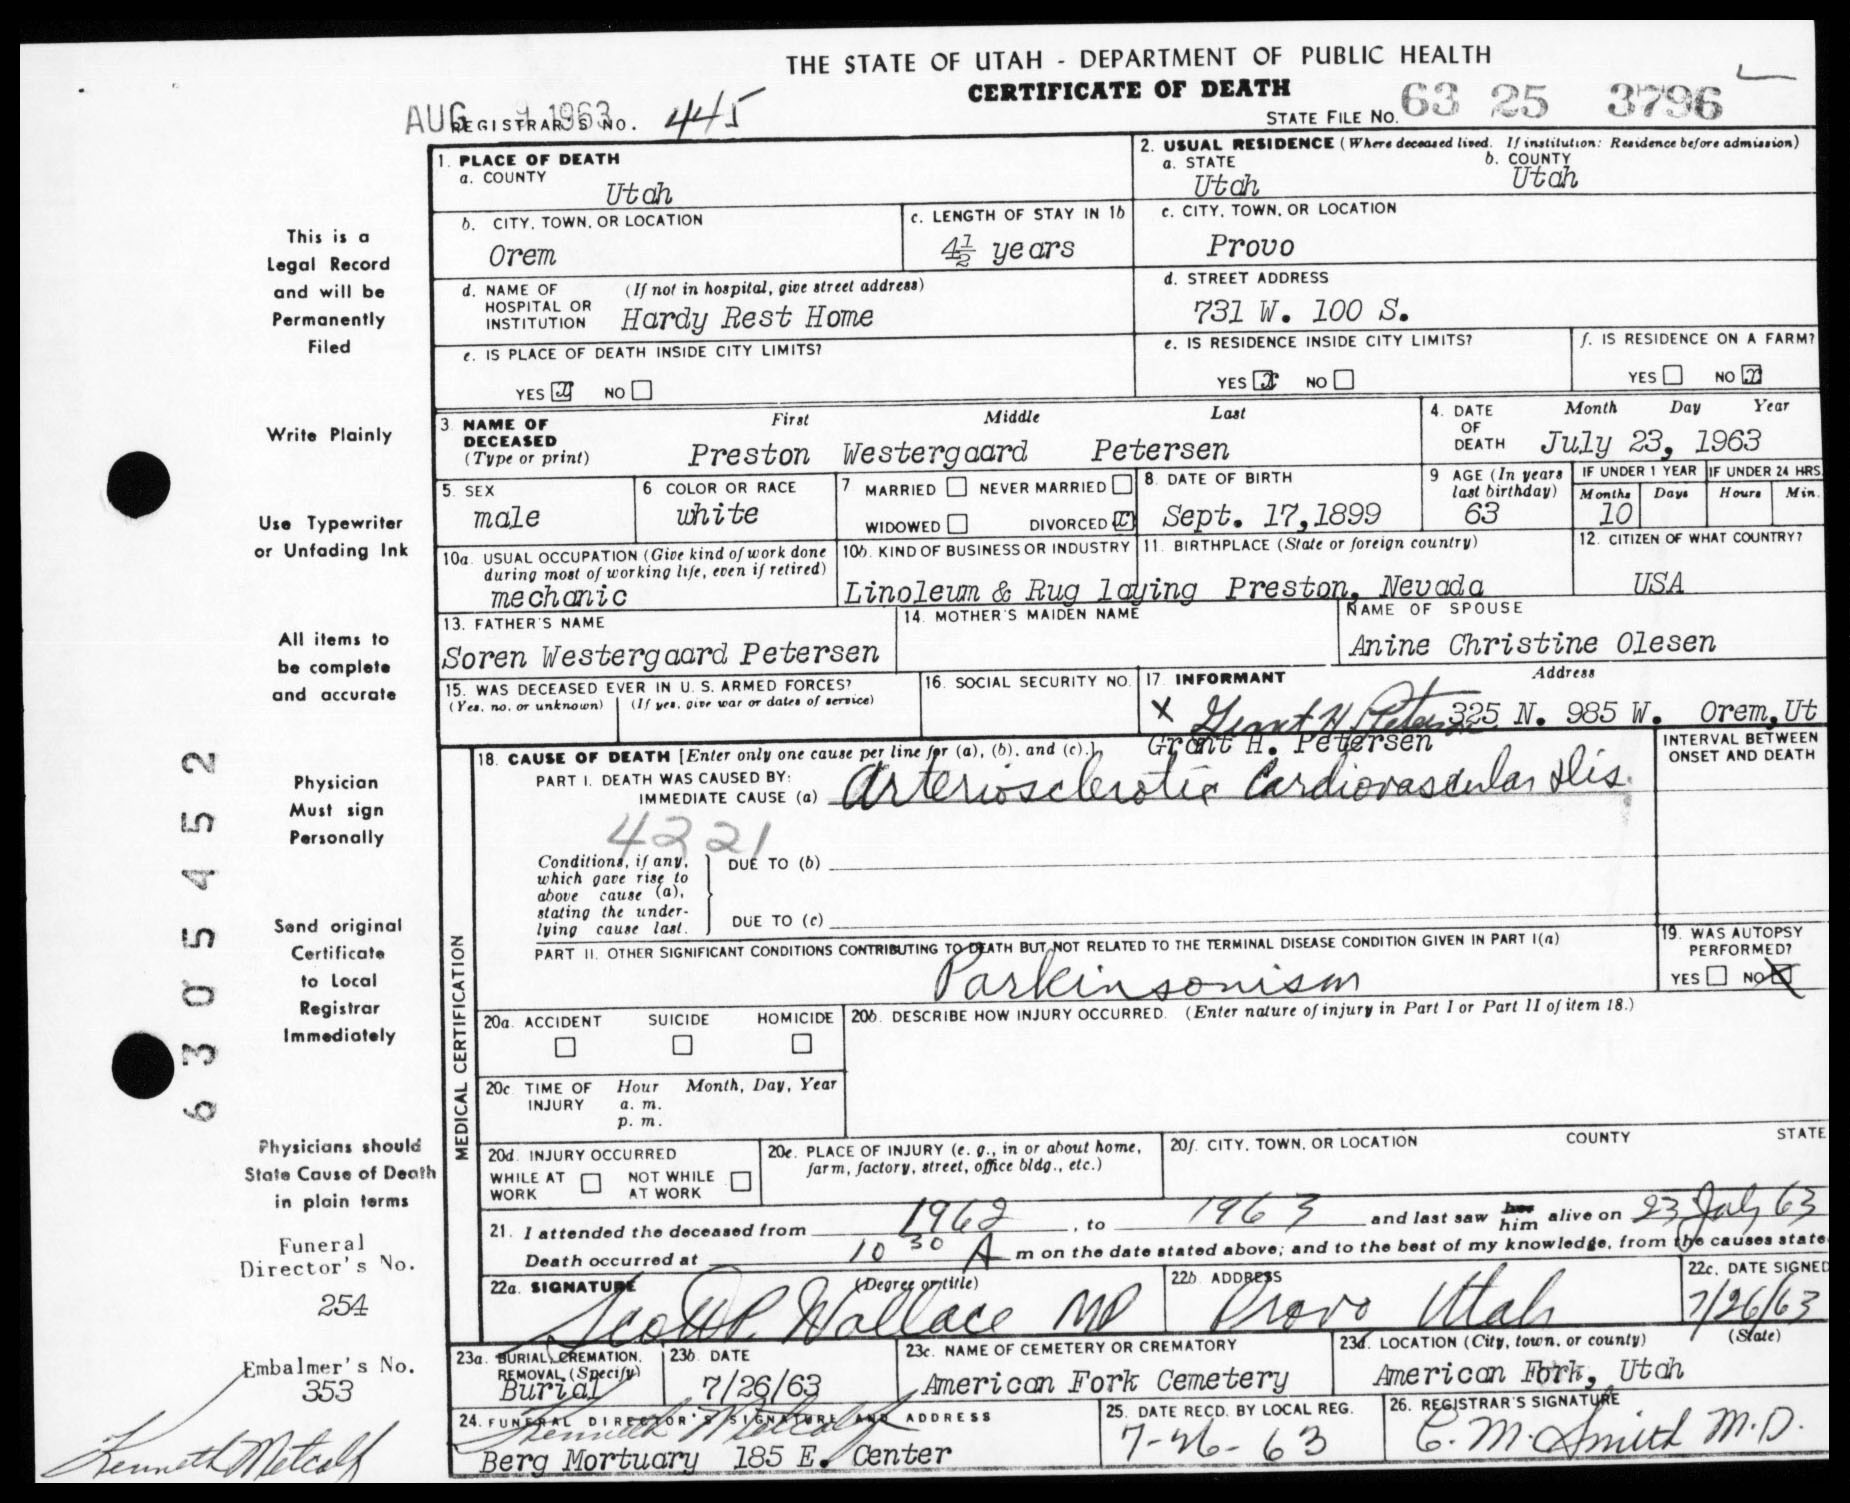 THE STATE OF UTAH - DEPARTMENT OF PUBLIC HEALTH
CERTIFICATE OF DEATH
AUG 9 1963
REGISTRAR'S NO. 445
STATE FILE NO. 63 25 3796
This is a
Legal Record
and will be
Permanently
Filed
Write Plainly
Use Typewriter
or Unfading Ink
All items to
be complete
and accurate
Physician
Must sign
Personally
Send original
Certificate
to Local
Registrar
Immediately
Physicians should
State Cause of Death
in plain terms
Funeral
Director's No.
254
Embalmer's No.
353
Kenneth Metcalf
6305452
1. PLACE OF DEATH
a. COUNTY
Utah
2. USUAL RESIDENCE (Where deceased lived. If institution: Residence before admission)
a. STATE
Utah
b. COUNTY
Utah
b. CITY, TOWN, OR LOCATION
Orem
c. LENGTH OF STAY IN 1b
4½ years
c. CITY, TOWN, OR LOCATION
Provo
d. NAME OF (If not in hospital, give street address)
HOSPITAL OR
INSTITUTION Hardy Rest Home
d. STREET ADDRESS
731 W. 100 S.
e. IS PLACE OF DEATH INSIDE CITY LIMITS?
YES x NO
e. IS RESIDENCE INSIDE CITY LIMITS?
YES x NO
f. IS RESIDENCE ON A FARM?
YES NO x
3. NAME OF
DECEASED
(Type or print)
First Middle Last
Preston Westergaard Petersen
4. DATE
OF
DEATH
Month Day Year
July 23, 1963
5. SEX
male
6 COLOR OR RACE
white
7 MARRIED NEVER MARRIED
WIDOWED DIVORCED x
8. DATE OF BIRTH
Sept. 17,1899
9 AGE (In years
last birthday)
63
IF UNDER 1 YEAR
Months Days
10
IF UNDER 24 HRS.
Hours Min.
10a. USUAL OCCUPATION (Give kind of work done
during most of working life, even if retired)
mechanic
10b. KIND OF BUSINESS OR INDUSTRY
Linoleum & Rug laying
11. BIRTHPLACE (State or foreign country)
Preston, Nevada
12. CITIZEN OF WHAT COUNTRY?
USA
13. FATHER'S NAME
Soren Westergaard Petersen
14. MOTHER'S MAIDEN NAME
NAME OF SPOUSE
Anine Christine Olesen
15. WAS DECEASED EVER IN U. S. ARMED FORCES?
(Yes, no, or unknown) (If yes, give war or dates of service)
16. SOCIAL SECURITY NO.
17 INFORMANT Address
X Grant H. Petersen 325 N. 985 W. Orem, Ut
Grant H. Petersen
MEDICAL CERTIFICATION
18. CAUSE OF DEATH [Enter only one cause per line for (a), (b), and (c).]
INTERVAL BETWEEN
ONSET AND DEATH
PART I. DEATH WAS CAUSED BY:
IMMEDIATE CAUSE (a) Arteriosclerotic Cardiovascular dis.
4221
Conditions, if any,
which gave rise to
above cause (a),
stating the under-
lying cause last.
DUE TO (b)
DUE TO (c)
PART II. OTHER SIGNIFICANT CONDITIONS CONTRIBUTING TO DEATH BUT NOT RELATED TO THE TERMINAL DISEASE CONDITION GIVEN IN PART I(a)
Parkinsonism
19. WAS AUTOPSY
PERFORMED?
YES NO X
20a. ACCIDENT SUICIDE HOMICIDE
20b. DESCRIBE HOW INJURY OCCURRED. (Enter nature of injury in Part I or Part II of item 18.)
20c TIME OF
INJURY
Hour Month, Day, Year
a. m.
p. m.
20d. INJURY OCCURRED
WHILE AT
WORK
NOT WHILE
AT WORK
20e. PLACE OF INJURY (e. g., in or about home,
farm, factory, street, office bldg., etc.)
20f. CITY, TOWN, OR LOCATION COUNTY STATE
21. I attended the deceased from 1962, to 1963 and last saw her him alive on 23 July 63
Death occurred at 10 30 A m on the date stated above; and to the best of my knowledge, from the causes state
22a. SIGNATURE (Degree or title)
Scott P. Wallace MD
22b. ADDRESS
Provo Utah
22c. DATE SIGNED
7/26/63
23a. BURIAL, CREMATION,
REMOVAL (Specify)
Burial
23b DATE
7/26/63
23c. NAME OF CEMETERY OR CREMATORY
American Fork Cemetery
23d. LOCATION (City, town, or county) (State)
American Fork, Utah
24. FUNERAL DIRECTOR'S SIGNATURE AND ADDRESS
Kenneth Metcalf
Berg Mortuary 185 E. Center
25. DATE RECD. BY LOCAL REG.
7-26-63
26. REGISTRAR'S SIGNATURE
C. M. Smith M.D.